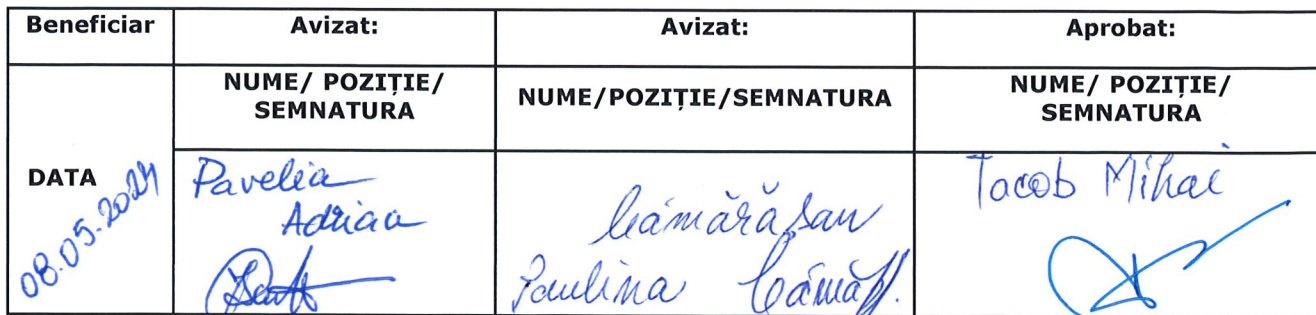 Beneficiar Avizat: Avizat: Aprobat:
NUME/ POZIȚIE/
SEMNATURA
NUME/POZIȚIE/SEMNATURA
NUME/ POZIȚIE/
SEMNATURA
DATA
08.05.2024
Pavelia
Adrian
Cămărășan
Paulina
Iacob Mihai